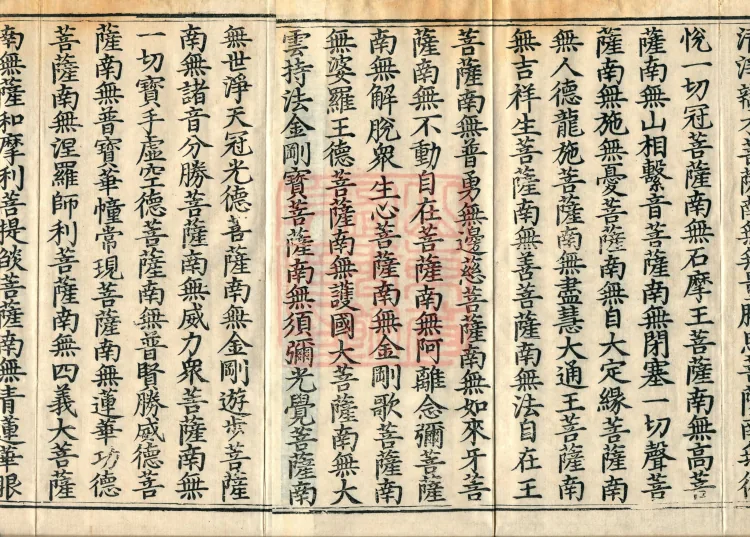 悅一切冠菩薩南無石摩王菩薩南無高菩
薩南無山相繫音菩薩南無閉塞一切聲菩
薩南無施無憂菩薩南無自大定緣菩薩南
無人德龍施菩薩南無盡慧大通王菩薩南
無吉祥生菩薩南無善菩薩南無法自在王
菩薩南無普勇無邊慈菩薩南無如來牙菩
薩南無不動自在菩薩南無阿離念彌菩薩
南無解脫眾生心菩薩南無金剛歌菩薩南
無婆羅王德菩薩南無護國大菩薩南無大
雲持法金剛寶菩薩南無須彌光覺菩薩南
無世淨天冠光德菩薩南無金剛遊步菩薩
南無諸音分勝菩薩南無威力眾菩薩南無
一切寶手虛空德菩薩南無普賢勝威德菩
薩南無普寶華幢常現菩薩南無蓮華功德
菩薩南無涅羅師利菩薩南無四義大菩薩
南無薩和摩利菩提燄菩薩南無青蓮華眼